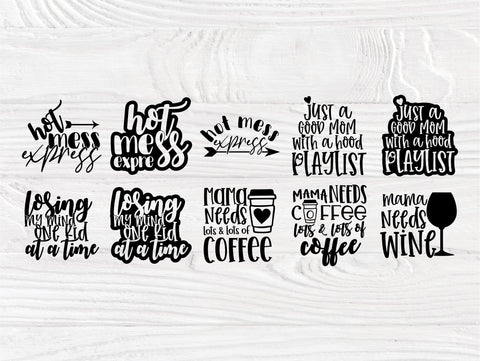 hot
mess
express
hot
mess
expre
hot mess
express
JUST A
GOOD MOM
WITH A HOOD
PLAYLIST
JUST A
GOOD MOM
WITH A HOOD
PLAYLIST
losing
MY MIND
ONE KID
at a time
losing
MY MIND
ONE KID
at a time
MAMA
NEEDS
lots & lots of
COFFEE
MAMA NEEDS
COFFEE
LOTS & LOTS OF
coffee
mama
NEEDS
WINE